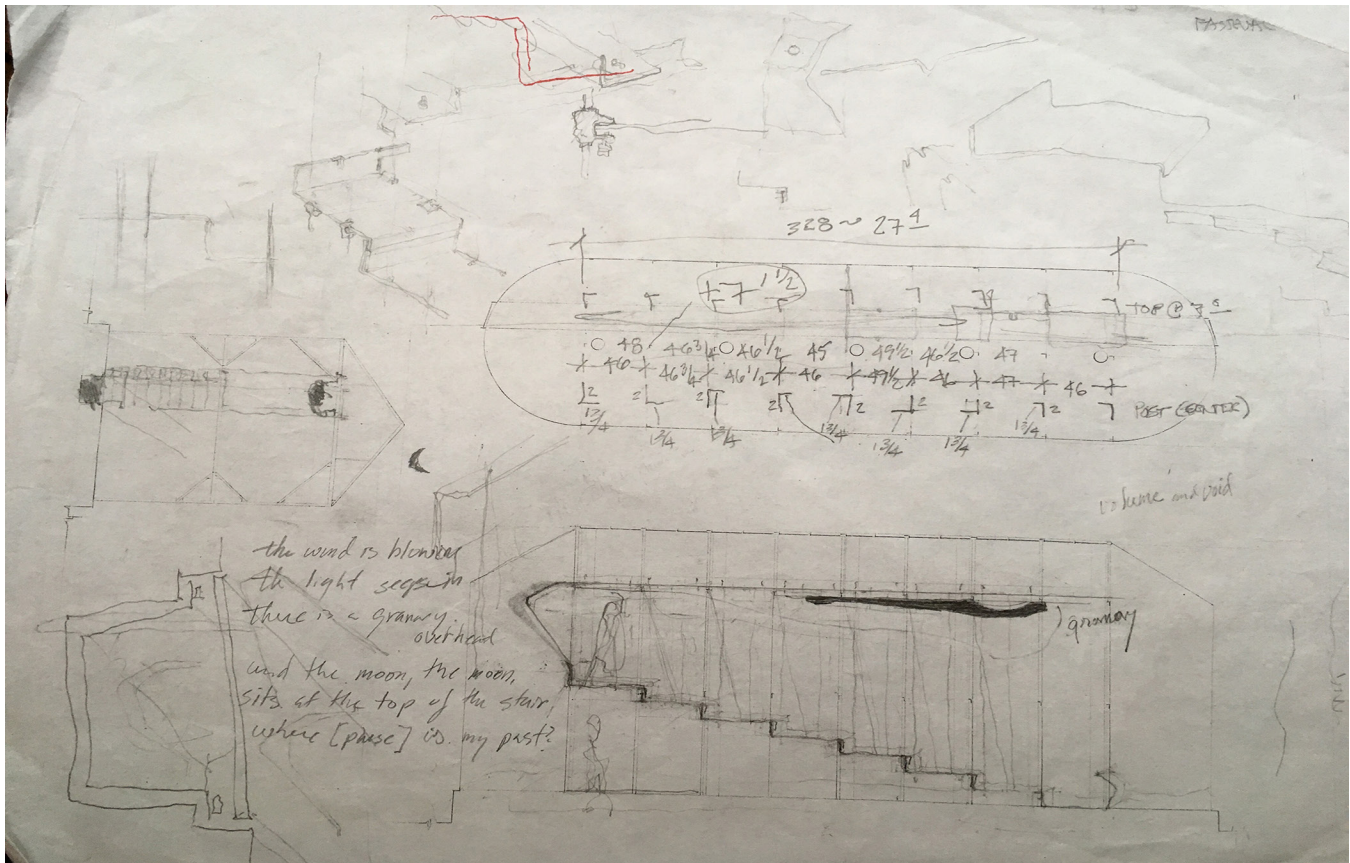 328 ~ 27 4
± 7 1 1/2
TOP @ 7
48 46 3/4 46 1/2 45 49 1/2 46 1/2 47
46 46 3/4 46 1/2 46 49 1/2 46 47 46
2 2 2 2 2 2 2 2
POST (CENTER)
1 3/4 1 3/4 1 3/4 1 3/4 1 3/4 1 3/4 1 3/4
volume and void
the wind is blowing
th light seeps in
there is a granary
overhead
and the moon, the moon,
sits at the top of the stair,
where [pause] is my past?
granary